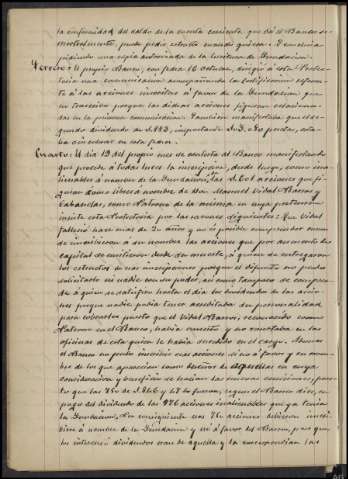 la conformidad del saldo de la cuenta corriente que dió el Banco se-
mestralmente, puede pedir estracto cuando quiera. Terminaba
pidiendo una copia autorizada de la escritura de Fundacion.
Tercero: El propio Banco, con fecha 16 octubre, dirigió a esta Protec-
toria una comunicacion acompañando la certificacion referen-
te á las acciones inscritas á favor de la Fundacion que
en
en la primera comunicacion. Tambien manifestaba que el se-
gundo dividendo de 1.883, importante
ba sin cobrar en esta fecha.
Cuarto: El dia 19 del propio mes se contestó al Banco manifestando
que proceda á todas luces la inscripcion, desde luego, como ina-
lienables á nombre de la Fundacion, las 1.601 acciones que fi-
guran como libres á nombre de don Manuel Vidal Abarca y
Cabanelas, como Patrono de la misma en cuya pretension
insiste esta Protectoria por las razones siguientes: Que Vidal
falleció hace mas de 20 años y no es posible comprender como
se inscribieron á su nombre las acciones que por aumento del
capital se emitieron desde su muerte, á quien se entregaron
los estractos de esas inscripciones porque el difunto no pudo
solicitarlo ni nadie con su poder, asi como tampoco se compren-
de á quien se satisfizo hasta el dia los dividendos de las accio-
nes porque nadie podia tener acreditada su personalidad
para cobrarlos puesto que el Vidal Abarca, reconocido como
Patrono en el Banco, habia muerto y no constaba en las
oficinas de este quien le habia sucedido en el cargo. Ademas
el Banco no pudo inscribir esas acciones sino á favor y en nom-
bre de los que aparecian como dueños de aquellas en cuya
consideracion y beneficio se hacian las nuevas emisiones, pues-
to que las 740 de 1.856 y 57 lo fueron, segun el Banco dice, en
pago del dividendo de las 976 acciones inalienables que ya tenia
la Fundacion. Por consiguiente esas 740 acciones debieron inscri-
birse á nombre de la Fundacion y no á favor del Banco, para que
los intereses ó dividendos eran de aquella y la correspondian las